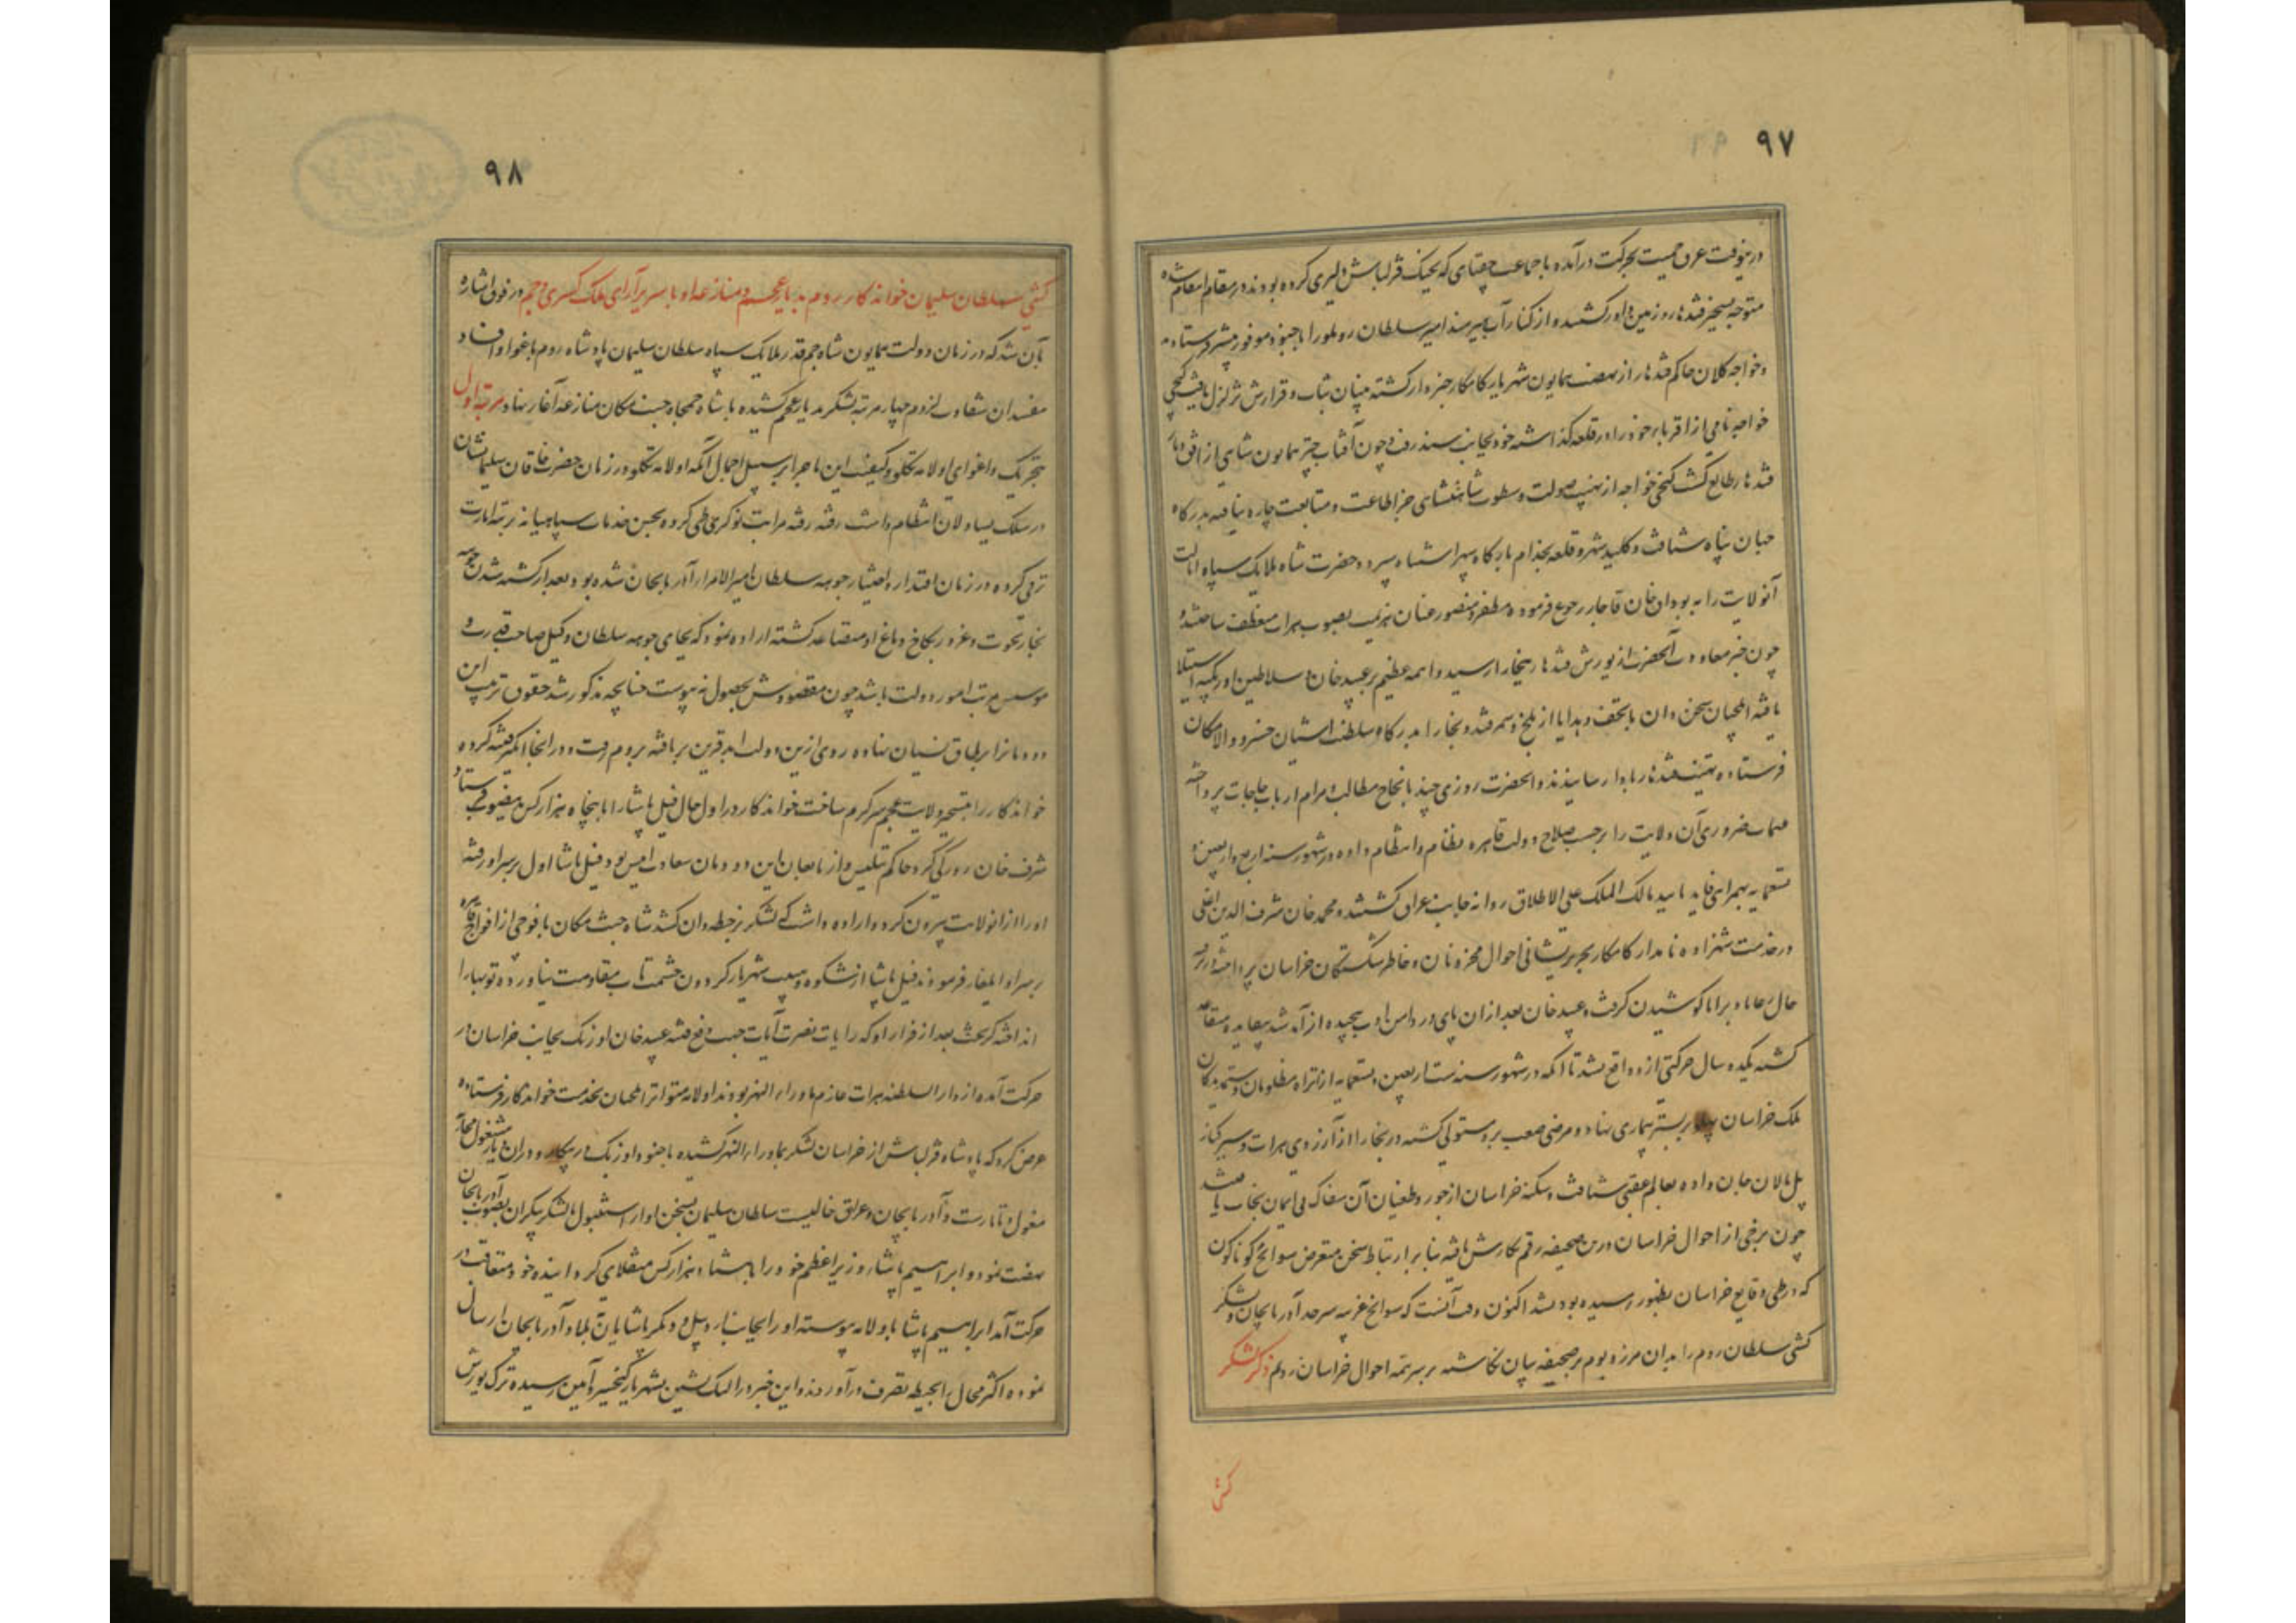 ۹۷
درینوقت عرق حمیت بحرکت درآمده با جماعت چغتای که بجنک قزلباش دلیری کرده بودند در مقام انتقام شده
متوجه تسخیر قندهار و زمین داور کشتند و از کنار آب هیرمند امیر سلطان روملو را با جنود موفور پیشتر فرستاده
و خواجه کلان حاکم قندهار از نهضت همایون شهریار کامکار خبردار کشته بنیان ثبات و قرارش تزلزل یافت کیچی
خواجه نامی از اقرباء خود را در قلعه کذاشته خود بجانب سند رفت و چون آفتاب چتر همایون شاهی از افق دیار
قندهار طالع کشت کیچی خواجه از نهیب صولت و سطوت شاهنشاهی جز اطاعت و متابعت چاره نیافته بدرکاه
جهان پناه شتافت و کلید شهر و قلعه بخدام بارکاه سپهر اشتباه سپرد و حضرت شاه ملایک سپاه ایالت
آنولایت را به بوداق خان قاجار رجوع فرموده مظفر و منصور عنان عزیمت بصوب هرات منعطف ساختند و
چون خبر معاودت آنحضرت از یورش قندهار ببخارا رسید واهمه عظیم بر عبید خان و سلاطین اوزبکیه استیلا
یافته ایلچیان سخن دان با تحف و هدایا از بلخ و سمرقند و بخارا بدرکاه سلطنت آشیان خسرو والامکان
فرستاده تهنیت قندهار بادا رسانیدند و آنحضرت روزی چند بانجاح مطالب و مرام ارباب حاجات پرداخته
مهمات ضروری آن ولایت را بر حسب صلاح دولت قاهره نظام و انتظام داده در شهور سنه اربع و اربعین و
تسعمایه بهمراهی تایید مالک الملک علی الاطلاق روانه جانب عراق کشتند و محمد خان شرف الدین اغلی
در خدمت شهزاده نامدار کامکار بجبر پریشانی احوال محزونان و خاطر شکستکان خراسان پرداخته در ترفیه
حال رعایا و برایا کوشیدن کرفت و عبید خان بعد از آن پای در دامن ادب پیچیده از آمد شد بیفایده متقاعد
کشته یکدو سال حرکتی ازو واقع نشد تا آنکه در شهور سنه ست اربعین و تسعمایه از اثر آه مظلومان و ستمدیدکان
ملک خراسان پهلو بر بستر بیماری نهاد و مرض صعب برو مستولی کشته در بخارا از آرزوی هرات و سیر کنار
پل مالان جان داده بعالم عقبی شتافت و سکنه خراسان از جور و طغیان آن سفاک بی ایمان نجات یافتند
چون برخی از احوال خراسان درین صحیفه رقم نکارش یافته بنابر ارتباط سخن متعرض سوانح کوناکون
که در طی وقایع خراسان بظهور رسیده بود نشد اکنون وقت آنست که سوانح غریبه سرحد آذربایجان و لشکر
کشی سلطان روم را بدان مرز و بوم بر صحیفه بیان نکاشته بر سر تتمه احوال خراسان رویم ذکر لشکر
کشی
۹۸
کشی سلطان سلیمان خواندکار روم بدیار عجم و منازعه او با سریرآرای ملک کسری و جم در فوق اشاره
بآن شد که در زمان دولت همایون شاه جم قدر ملایک سپاه سلطان سلیمان پادشاه روم باغوا و افساد
مفسدان شقاوت لزوم چهار مرتبه لشکر بدیار عجم کشیده با شاه جمجاه جنت مکان منازعه آغاز نهاد مرتبه اول
بتحریک و اغوای اولامه تکلو و کیفیت این ماجرا بر سبیل اجمال آنکه اولامه تکلو در زمان حضرت خاقان سلیمانشان
در سلک یساولان انتظام داشت رفته رفته مراتب نوکری طی کرده بحسن خدمات سپاهیانه برتبه امارت
ترقی کرده در زمان اقتدار و اختیار جوهه سلطان امیر الامراء آذربایجان شده بود بعد از کشته شدن جوهه
بخار نخوت و غرور بکاخ دماغ او متصاعد کشته اراده نمود که بجای جوهه سلطان وکیل صاحب رای و
موسس مرتب امور دولت باشد چون مقصودش بحصول نه پیوست چنانچه مذکور شد حقوق تربیت این
دودمانرا بر طاق نسیان نهاده روی ازین دولت ابد قرین برتافته بروم رفت و در آنجا انکیز فتنه کرده
خواندکار را بتسخیر ولایت عجم سرکرم ساخت خواندکار در اول حال فیل پاشا را با پنجاه هزار کس فرستاد
شرف خان روزکی کرد حاکم تبلیس از تابعان این دودمان سعادت انیس بود فیل پاشا اول بر سر او رفته
او را از آنولایت بیرون کرد و اراده داشت که لشکر بر خطه وان کشد شاه جنت مکان با فوجی از افواج قاهره
بر سر او ایلغار فرمودند فیل پاشا از شکوه و مهیب شهریار کردون حشمت تاب مقاومت نیاورده توپها را
انداخته کریخت بعد از فرار او که رایات نصرت آیات جهت دفع فتنه عبید خان اوزبک بجانب خراسان در
حرکت آمده از دار السلطنه هرات عازم ماوراء النهر بودند اولامه متواتر ایلچیان بخدمت خواندکار فرستاده
عرض کرد که پادشاه قزلباش از خراسان لشکر بماوراء النهر کشیده با جنود اوزبک در پیکار و در آن دیار مشغول محاربه
مغول و تاتارست و آذربایجان و عراق خالیست سلطان سلیمان بسخن او از استنبول با لشکر بیکران بصوب آذربایجان
نهضت نمود و ابراهیم پاشا وزیر اعظم خود را با هشتاد هزار کس منقلای کردانیده خود متعاقب در
حرکت آمد ابراهیم پاشا باولامه پیوسته او را بجانب اردبیل و دیکر پاشایان بلاد آذربایجان ارسال
نموده اکثر محال بحیطه تصرف درآوردند و این خبر در النک نشین بشهریار کیخسرو آیین رسیده ترک یورش